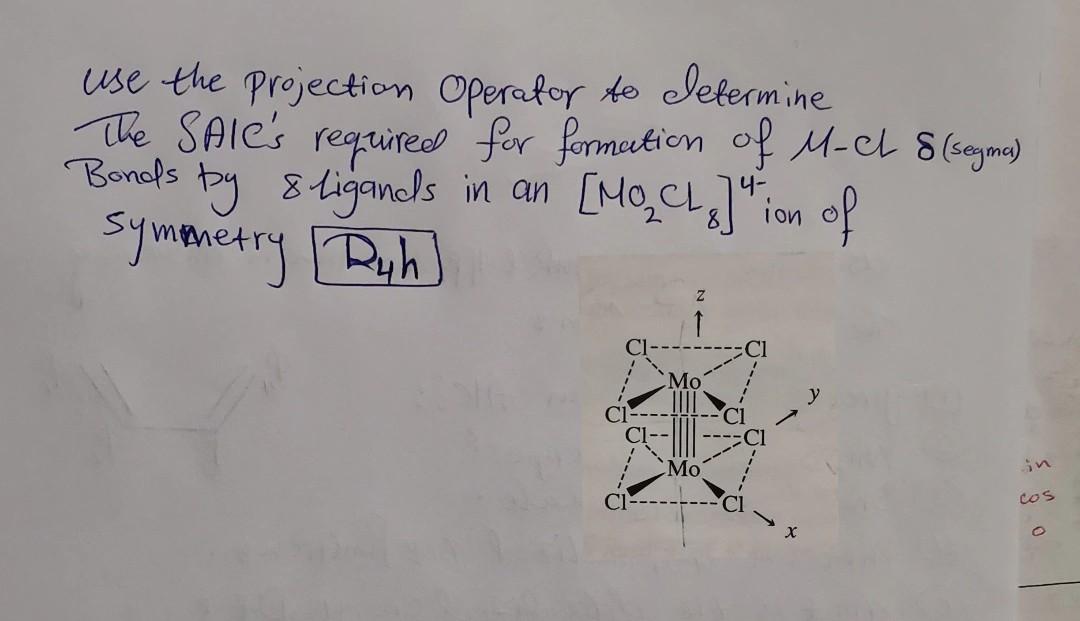 use the projection Operator to determine
The SAlC's required for formation of M-Cl δ (segma)
Bonds by 8 ligands in an [Mo₂Cl₈]⁴⁻ ion of
symmetry D4h
z
Cl Cl
Mo
y
Cl Cl
Cl Cl
Mo
in
Cl Cl
cos
x
o